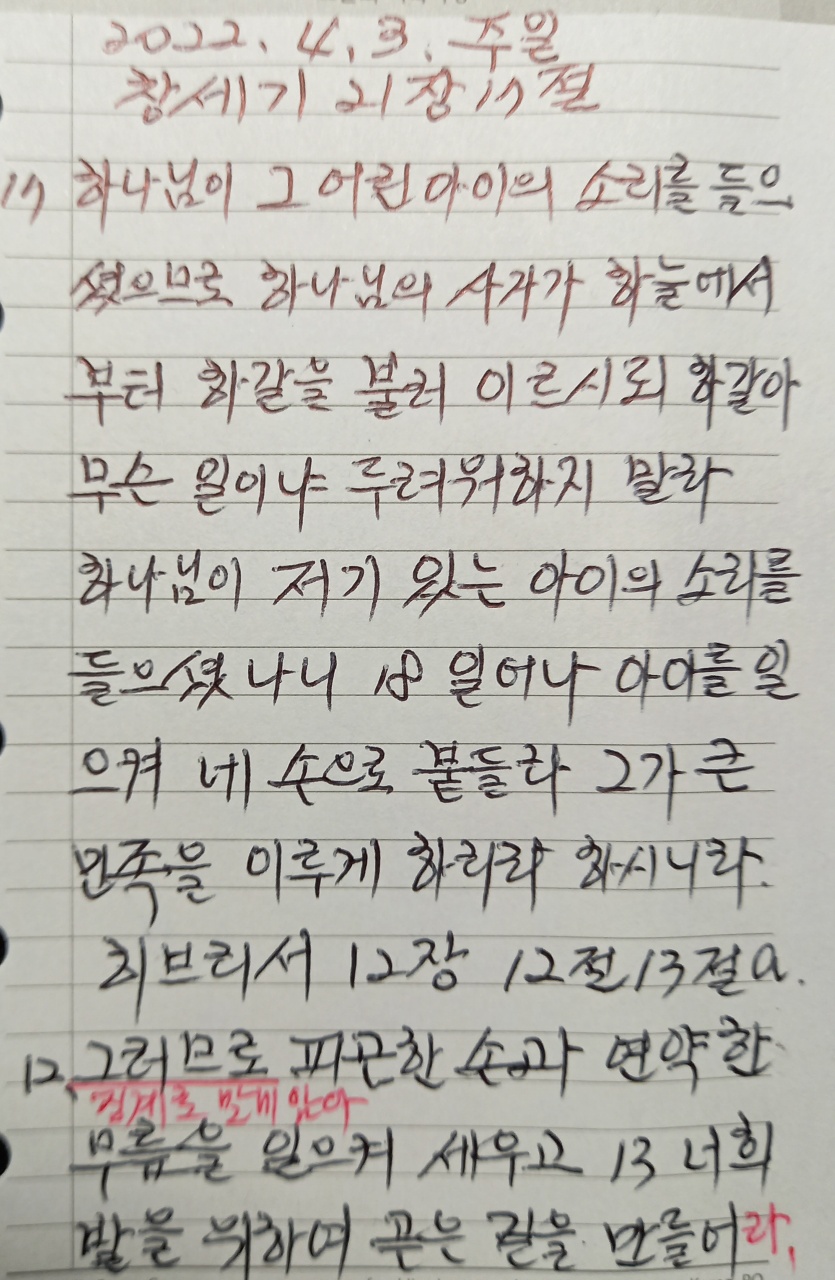 2022. 4. 3. 주일
창세기 21장 17절
17 하나님이 그 어린아이의 소리를 들으
셨으므로 하나님의 사자가 하늘에서
부터 하갈을 불러 이르시되 하갈아
무슨 일이냐 두려워하지 말라
하나님이 저기 있는 아이의 소리를
들으셨나니 18 일어나 아이를 일
으켜 네 손으로 붙들라 그가 큰
민족을 이루게 하리라 하시니라.
히브리서 12장 12절 13절a.
12. 그러므로 피곤한 손과 연약한
징계로 말미암아
무릎을 일으켜 세우고 13 너희
발을 위하여 곧은 길을 만들어라,